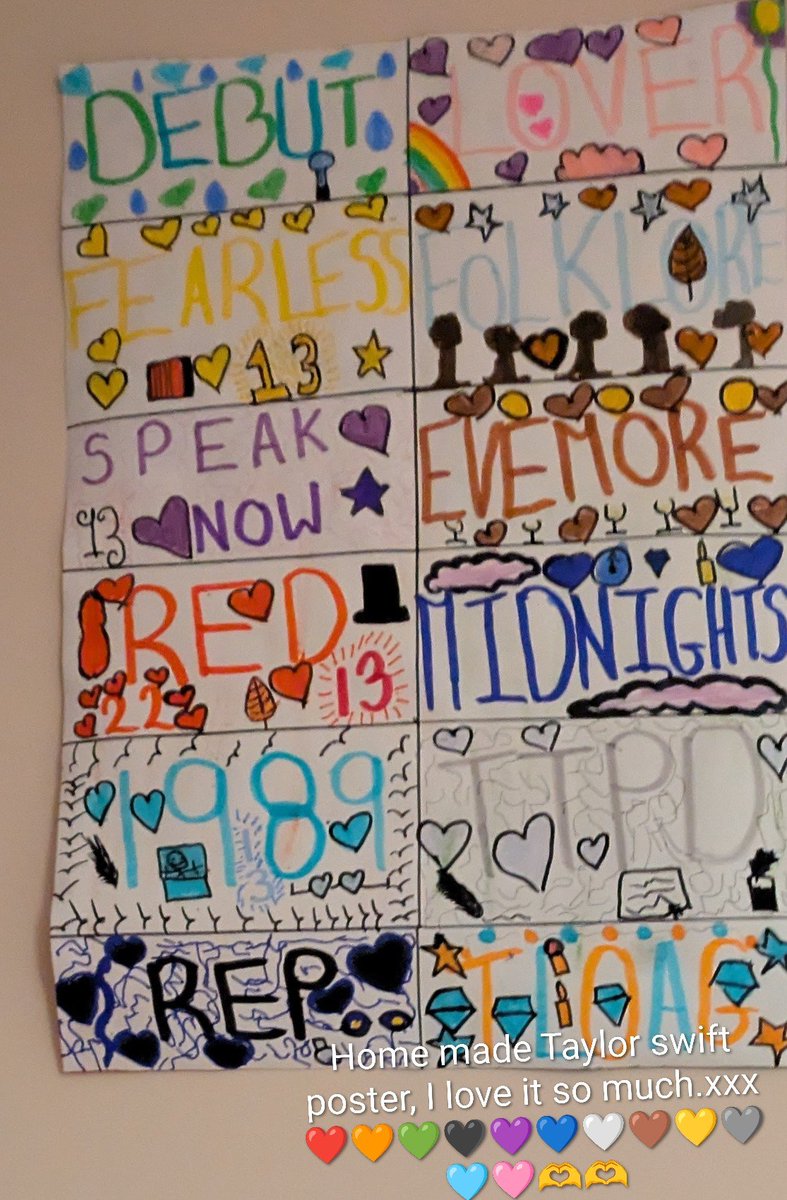 DEBUT
LOVER
FEARLESS
13
FOLKLORE
SPEAK
13 NOW
EVEMORE
RED
22
13
MIDNIGHTS
1989
13
TTPD
REP
TIOAG
Home made Taylor swift
poster, I love it so much.xxx
❤️🧡💚🖤💜💙🤍🤎💛🩶
🩵🩷🫶🫶